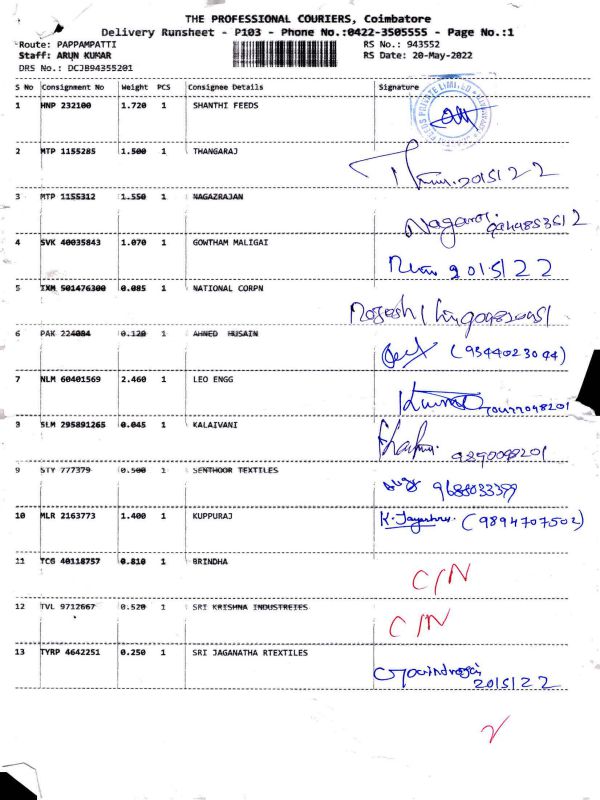 THE PROFESSIONAL COURIERS, Coimbatore
Delivery Runsheet - P103 - Phone No.:0422-3505555 - Page No.:1
Route: PAPPAMPATTI RS No.: 943552
Staff: ARUN KUMAR RS Date: 20-May-2022
DRS No.: DCJB94355201
S No Consignment No Weight PCS Consignee Details Signature
1 HNP 232100 1.720 1 SHANTHI FEEDS
PRIVATE LIMITED
2 MTP 1155285 1.500 1 THANGARAJ
2015122
3 MTP 1155312 1.550 1 NAGAZRAJAN
Nagaraj
4 SVK 40035843 1.070 1 GOWTHAM MALIGAI
2015122
5 IXM 501476300 0.085 1 NATIONAL CORPN
6 PAK 224084 0.120 1 AHNED HUSAIN
(9344023044)
7 NLM 60401569 2.460 1 LEO ENGG
8 SLM 295891265 0.045 1 KALAIVANI
9 STY 777379 0.500 1 SENTHOOR TEXTILES
9688033399
10 MLR 2163773 1.400 1 KUPPURAJ
K. Jayashree. (9894707502)
11 TCG 40118757 0.810 1 BRINDHA
C/N
12 TVL 9712667 0.520 1 SRI KRISHNA INDUSTREIES
C/N
13 TYRP 4642251 0.250 1 SRI JAGANATHA RTEXTILES
Govindraj
2015122